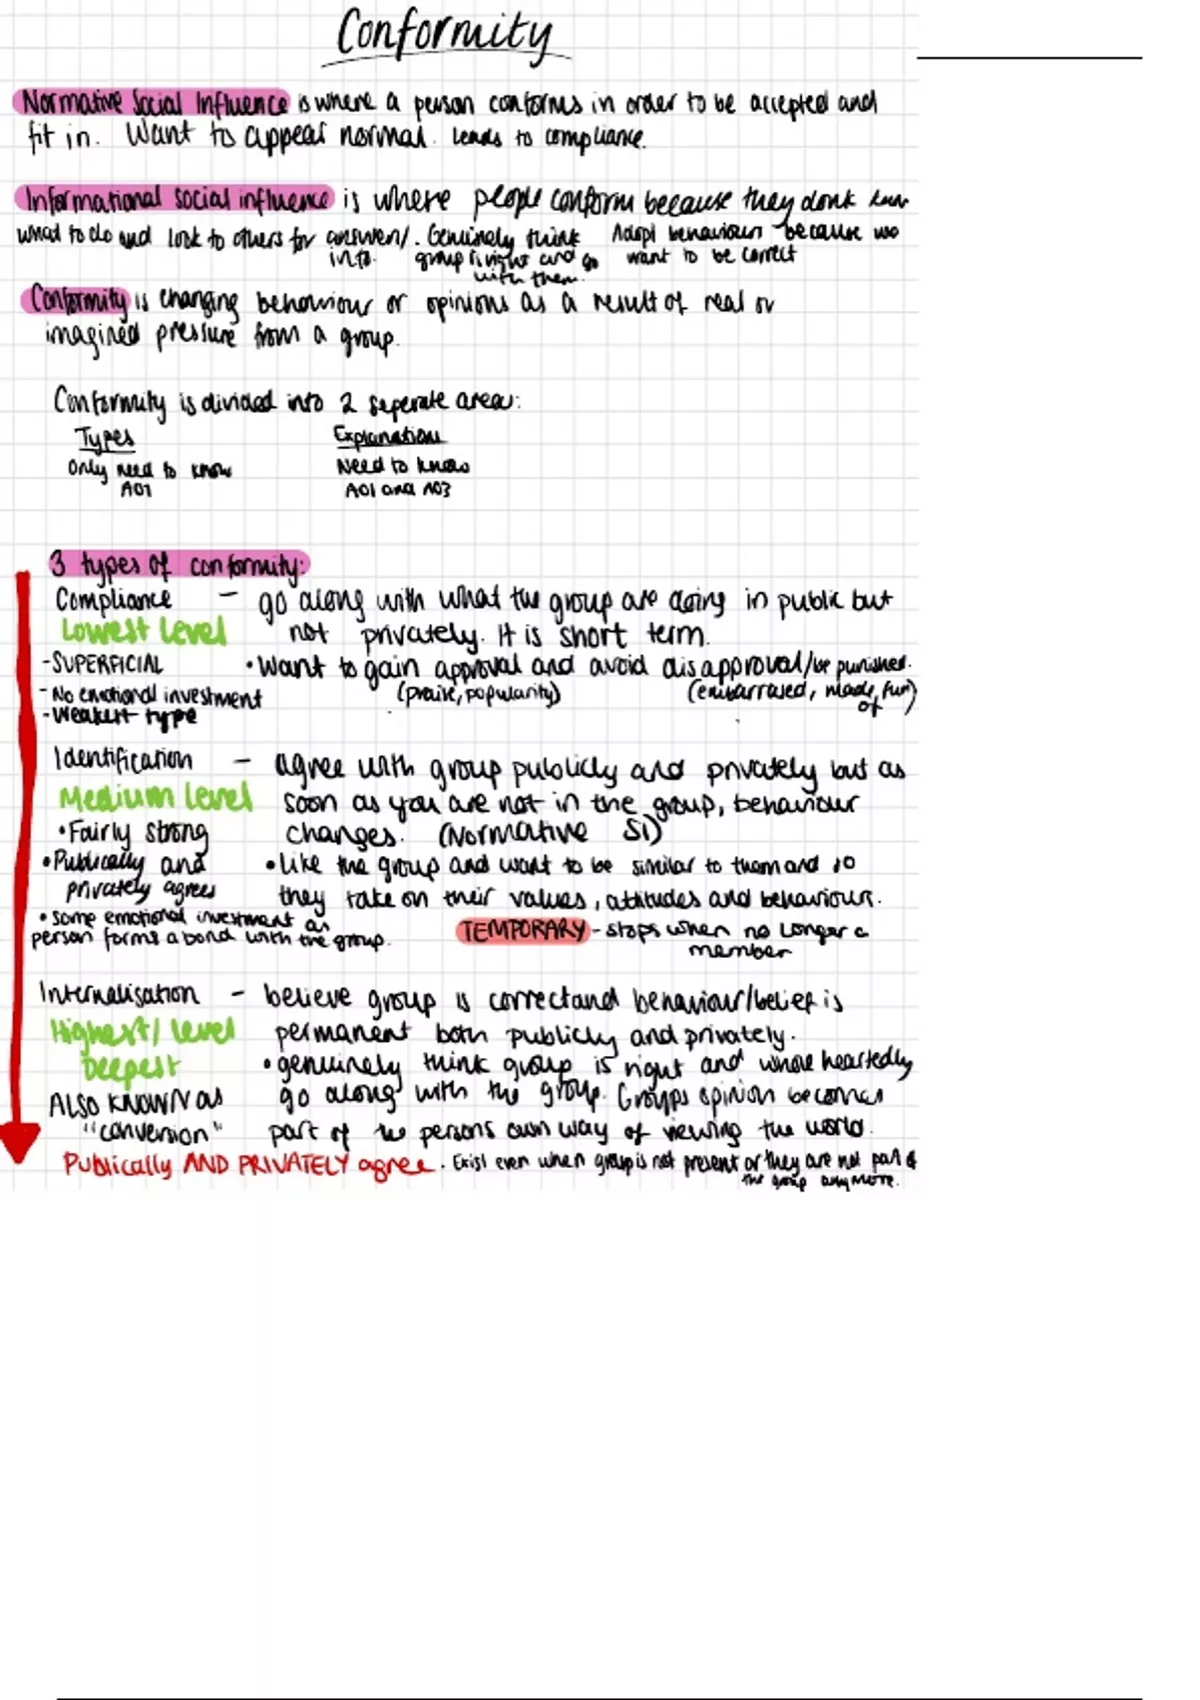 Conformity
Normative Social Influence is where a person conforms in order to be accepted and
fit in. Want to appear normal. Leads to compliance.
Informational social influence is where people conform because they dont know
what to do and look to others for answers/info. Genuinely think group is right and go with them. Adopt behaviours because we want to be correct
Conformity is changing behaviour or opinions as a result of real or
imagined pressure from a group.
Conformity is divided into 2 seperate areas:
Types
Only need to know
AO1
Explanations
Need to know
AO1 and AO3
3 types of conformity:
Compliance - go along with what the group are doing in public but
Lowest Level not privately. It is short term.
-SUPERFICIAL •Want to gain approval and avoid disapproval/be punished.
- No emotional investment (praise, popularity) (embarrassed, made fun of)
-Weakest type
Identification - agree with group publicly and privately but as
Medium level soon as you are not in the group, behaviour
•Fairly strong changes. (Normative SI)
•Publically and •Like the group and want to be similar to them and so
privately agrees they take on their values, attitudes and behaviours.
•Some emotional investment as TEMPORARY - stops when no longer a
person forms a bond with the group. member
Internalisation - believe group is correct and behaviour/belief is
Highest/ level permanent both publicly and privately.
Deepest •genuinely think group is right and whole heartedly
ALSO KNOWN as go along with the group. Groups opinion becomes
"conversion" part of the persons own way of viewing the world.
Publically AND PRIVATELY agree. Exist even when group is not present or they are not part of
the group anymore.